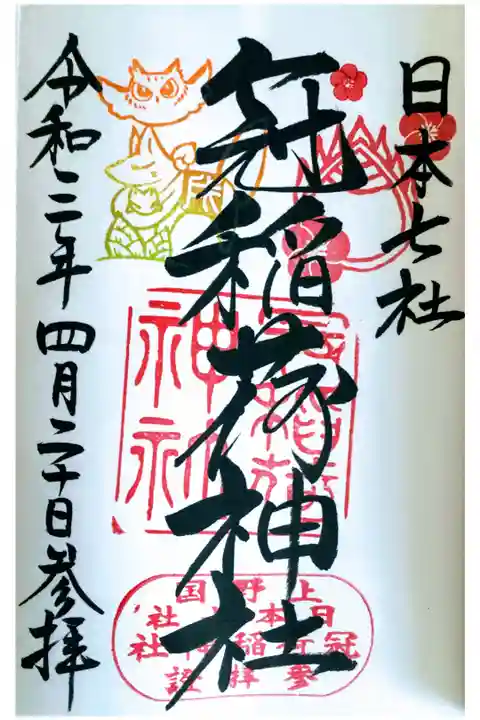 日本七社
冠稲荷神社
令和三年四月二十日参拝
冠稲荷神社
上野国
日本七社
冠稲荷神社
参拝証